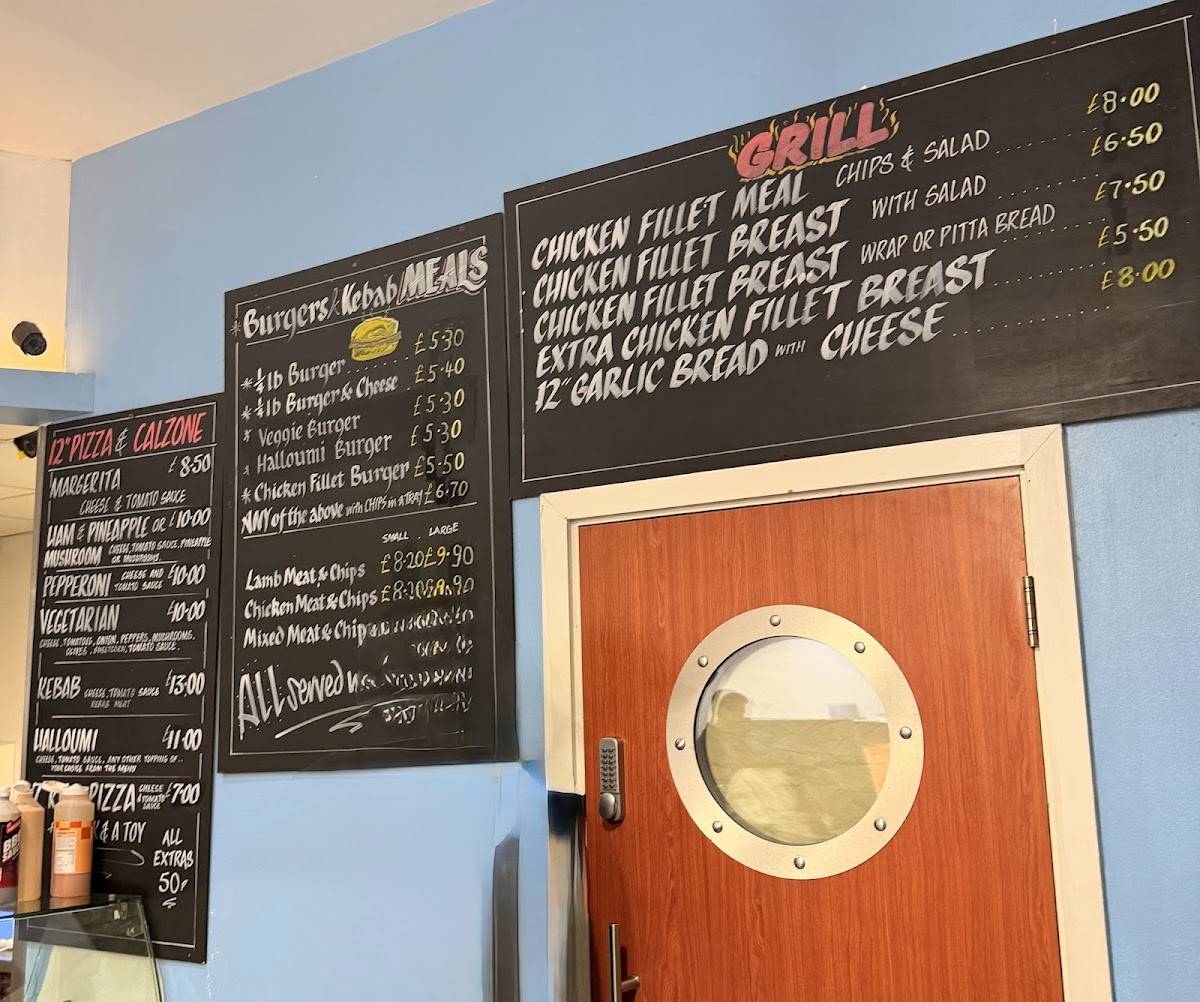 12" PIZZA & CALZONE
MARGERITA £8.50
CHEESE & TOMATO SAUCE
HAM & PINEAPPLE OR £10.00
MUSHROOM CHEESE, TOMATO SAUCE, PINEAPPLE
OR MUSHROOMS
PEPPERONI CHEESE AND TOMATO SAUCE £10.00
VEGETARIAN £10.00
CHEESE, TOMATOES, ONION, PEPPERS, MUSHROOMS,
OLIVES, SWEETCORN, TOMATO SAUCE.
KEBAB CHEESE, TOMATO SAUCE £13.00
KEBAB MEAT
HALLOUMI £11.00
CHEESE, TOMATO SAUCE, ANY OTHER TOPPING OF..
YOUR CHOICE FROM THE MENU
PIZZA CHEESE & TOMATO SAUCE £7.00
& A TOY
ALL
EXTRAS
50p
Burgers & Kebab MEALS
* 1/4 lb Burger £5.30
* 1/4 lb Burger & Cheese £5.40
* Veggie Burger £5.30
* Halloumi Burger £5.30
* Chicken Fillet Burger £5.50
ANY of the above with CHIPS in a TRAY £6.70
SMALL . LARGE
Lamb Meat & Chips £8.20 £9.90
Chicken Meat & Chips £8.20 £9.90
Mixed Meat & Chip
ALL served
GRILL
CHICKEN FILLET MEAL CHIPS & SALAD £8.00
CHICKEN FILLET BREAST WITH SALAD £6.50
CHICKEN FILLET BREAST WRAP OR PITTA BREAD £7.50
EXTRA CHICKEN FILLET BREAST £5.50
12" GARLIC BREAD WITH CHEESE £8.00